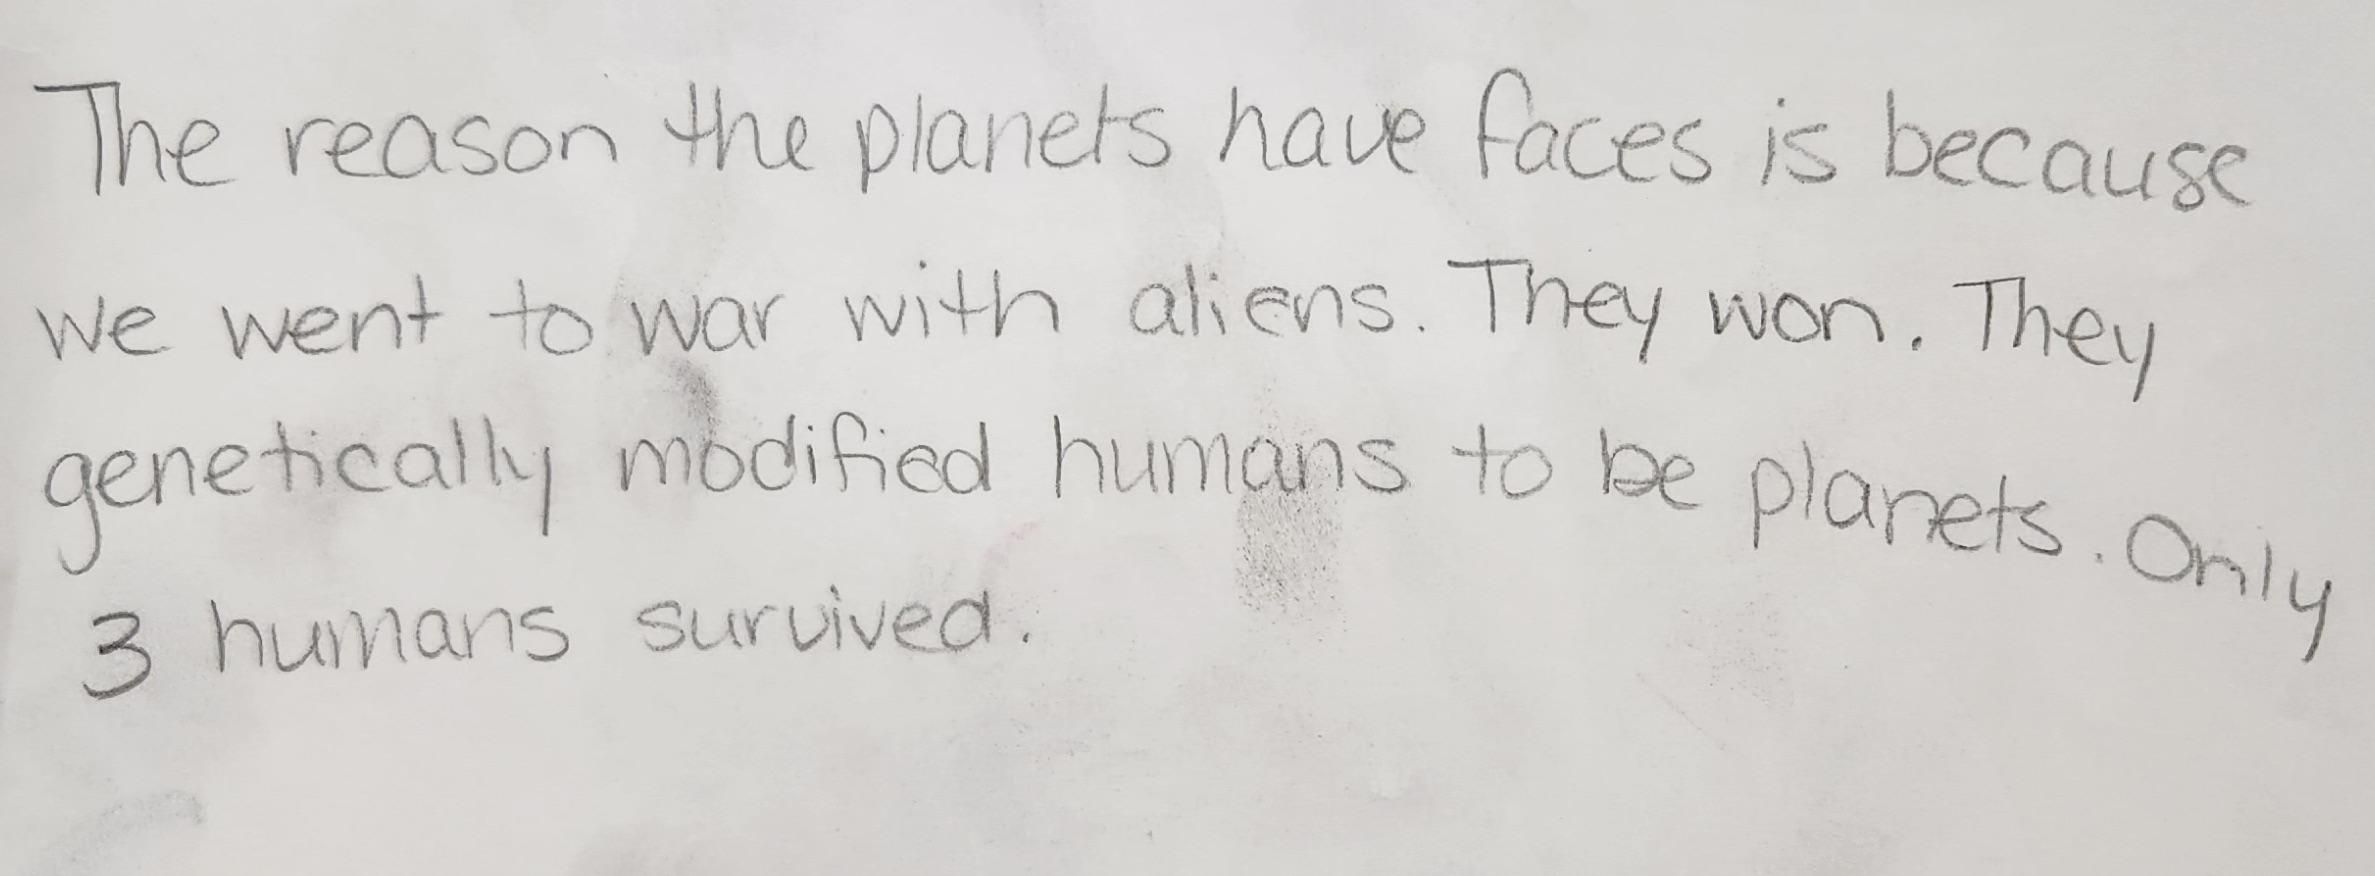 The reason the planets have faces is because
we went to war with aliens. They won. They
genetically modified humans to be planets. Only
3 humans survived.